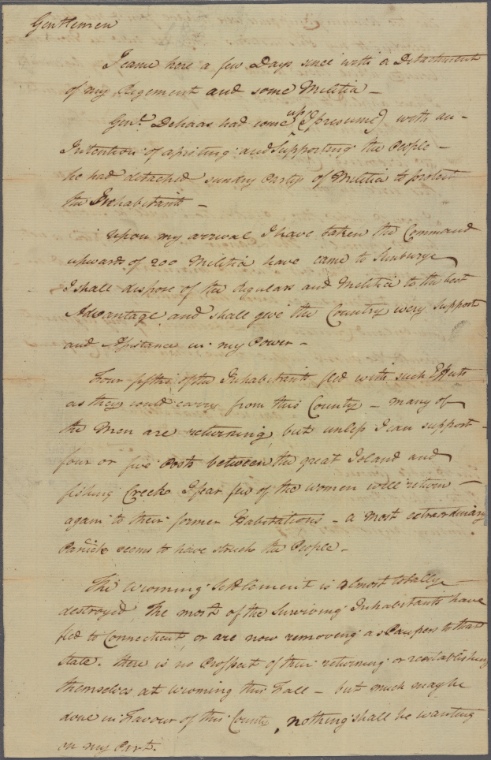 Gentlemen
I came here a few Days since with a Detachment
of my Regement and some Militia –
Genl. Dehaas had come up (I presume) with an
Intention of assisting and Supporting the People –
he had detached sundry Partys of Militia to protect
the Inhabitants –
Upon my arrival I have taken the Command
upwards of 200 Militia have came to Sunbury
I shall dispose of the regulars and Militia to the best
Advantage and shall give the Country every Support
and Assistance in my Power –
Four fifths of the Inhabitants fled with such Effects
as they could carry from this County – many of
the Men are returning, but unless I can support
four or five Posts between the great Island and
fishing Creek I fear few of the Women will return
again to their former Habitations – a most extraordinary
Pannick seems to have struck the People –
The Wioming Settlement is almost totally
destroyed, The most of the Surviving Inhabitants have
fled to Connecticut or are now removing as Paupers to that
State. there is no Prospect of their returning or reestablishing
themselves at Wioming this Fall – but much may be
done in Favour of this County, nothing shall be wanting
on my Part.